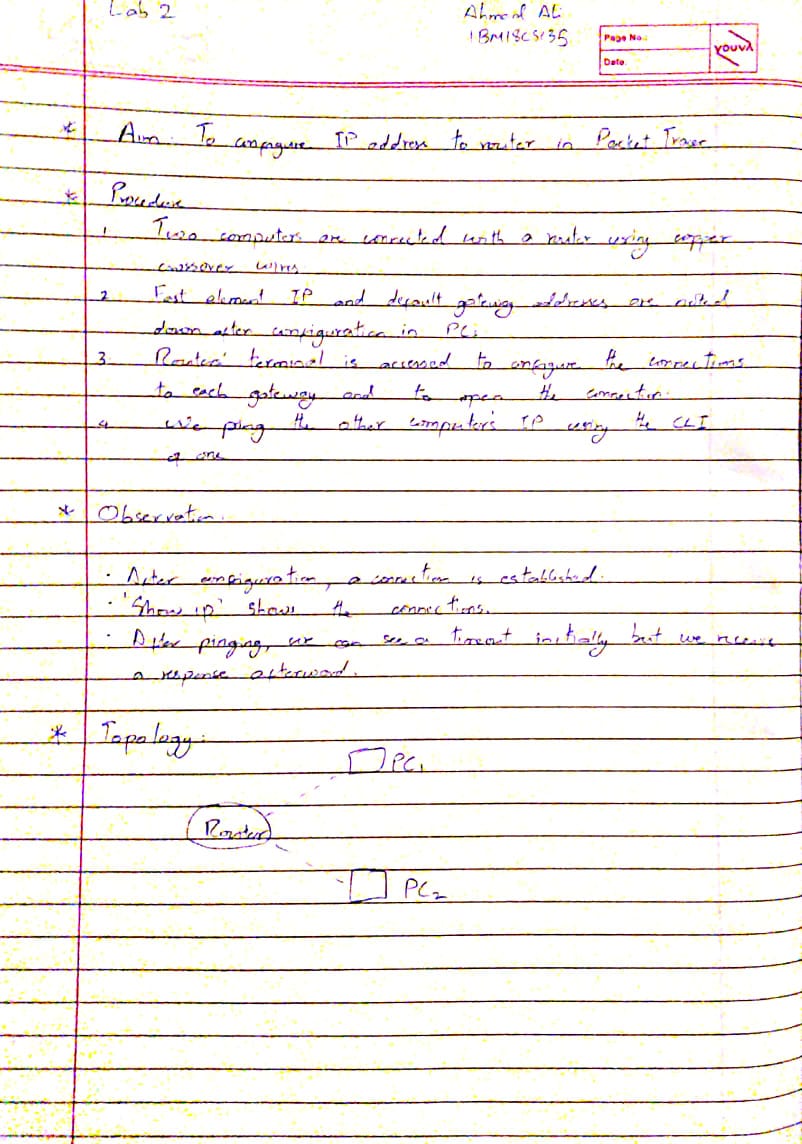 Lab 2
Ahmed Ali
1BM18CS135
Page No.:
Date
YOUVA
* Aim: To configure IP address to router in Packet Tracer
* Procedure
1. Two computers are connected with a router using copper
crossover wires
2. Fast element IP and default gateway addresses are noted
down after configuration in PCs
3. Routers' terminal is accessed to configure the connections
to each gateway and to open the connection.
4. We ping the other computer's IP using the CLI
of one
* Observation:
· After configuration, a connection is established.
· 'Show ip' shows the connections.
· After pinging, we can see a timeout initially but we receive
a response afterward.
* Topology:
PC1
Router
PC2